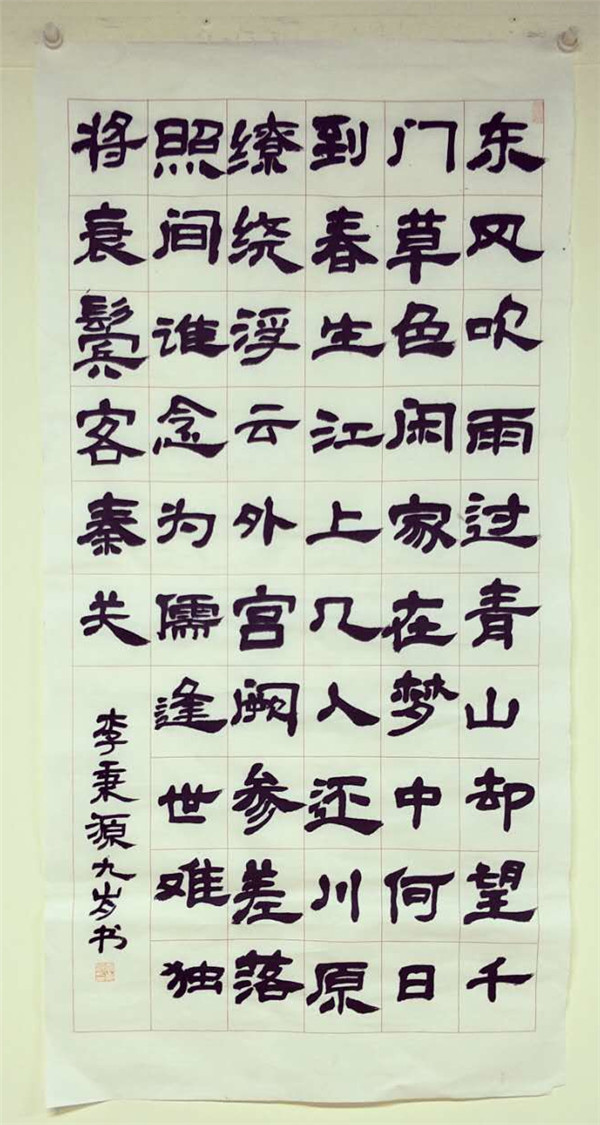 东风吹雨过青山却望千
门草色闲家在梦中何日
到春生江上几人还川原
缭绕浮云外宫阙参差落
照间谁念为儒逢世难独
将衰鬓客秦关
李秉源九岁书